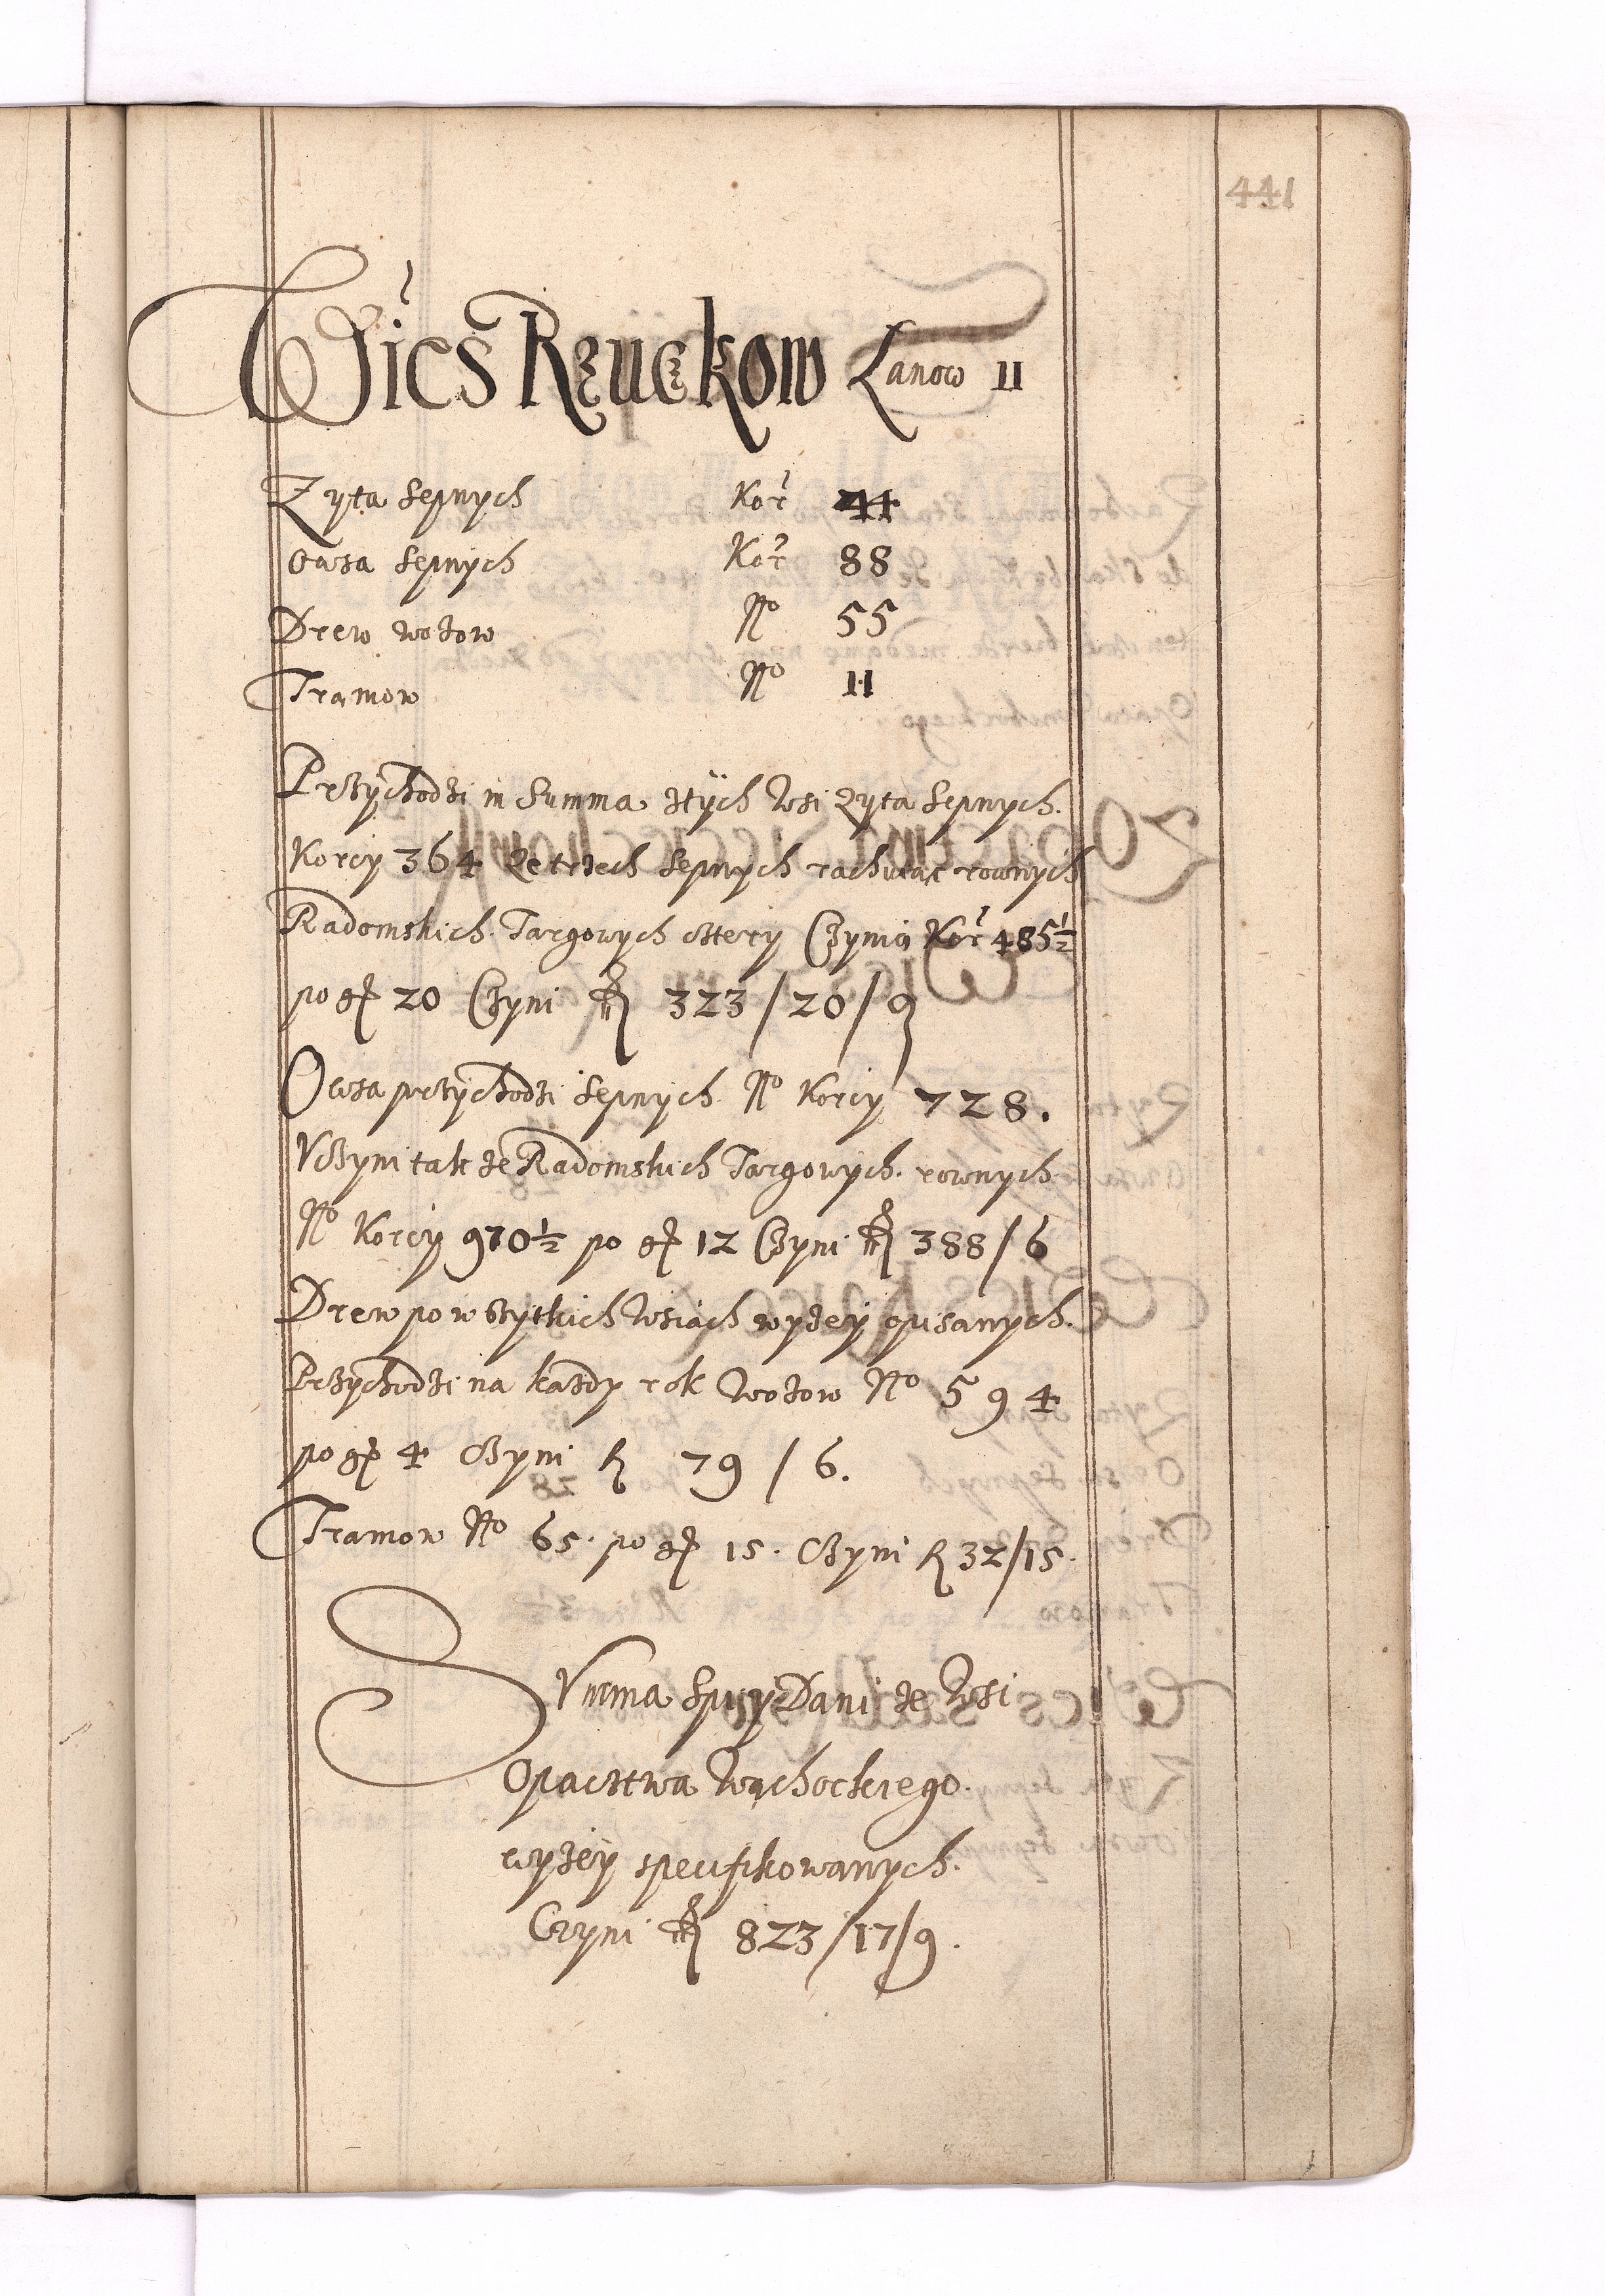 441
Wies Rzuckow Łanow 11
Zyta Sepnych Kor 44
Owsa Sepnych Kor 88
Drew wozow No 55
Tramow No 11
Przychodzi in Summa stych wsi Zyta Sepnych.
Korcy 364 Ze trzech Sepnych rachuiąc rownych
Radomskich Targowych cztery Czynią Kor 485½
po gr 20 Czyni fl 323/20/9
Owsa przychodzi Sepnych No Korcy 728.
Vczyni takze Radomskich Targowych rownych
No Korcy 970½ po gr 12 Czyni fl 388/6
Drew po wszytkich wsiach wyzey opisanych.
Przychodzi na kazdy rok wozow No 594
po gr 4 Czyni fl 79/6.
Tramow No 65. po gr 15. Czyni fl 32/15.
SVmma Spizy Dani ze wsi
Opactwa Wąchockiego.
wyzey specifikowanych.
Czyni fl 823/17/9.